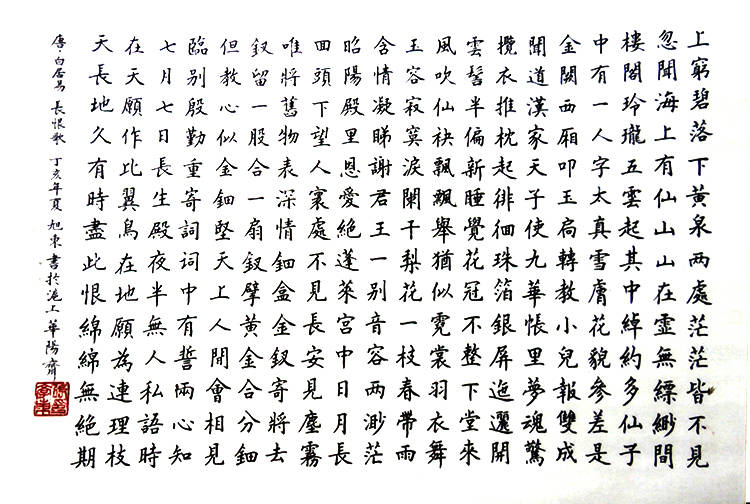 上窮碧落下黃泉兩處茫茫皆不見
忽聞海上有仙山山在虛無縹緲間
樓閣玲瓏五雲起其中綽約多仙子
中有一人字太真雪膚花貌參差是
金闕西廂叩玉扃轉教小兒報雙成
聞道漢家天子使九華帳里夢魂驚
攬衣推枕起徘徊珠箔銀屏迤邐開
雲髻半偏新睡覺花冠不整下堂來
風吹仙袂飄飄舉猶似霓裳羽衣舞
玉容寂寞淚闌干梨花一枝春帶雨
含情凝睇謝君王一别音容兩渺茫
昭陽殿里恩愛絶蓬萊宮中日月長
回頭下望人寰處不見長安見塵霧
唯將舊物表深情鈿盒金釵寄將去
釵留一股合一扇釵擘黃金合分鈿
但教心似金鈿堅天上人間會相見
臨别殷勤重寄詞詞中有誓兩心知
七月七日長生殿夜半無人私語時
在天願作比翼鳥在地願為連理枝
天長地久有時盡此恨綿綿無絶期
唐·白居易 長恨歌 丁亥年夏 旭東書於滬上華陽齋